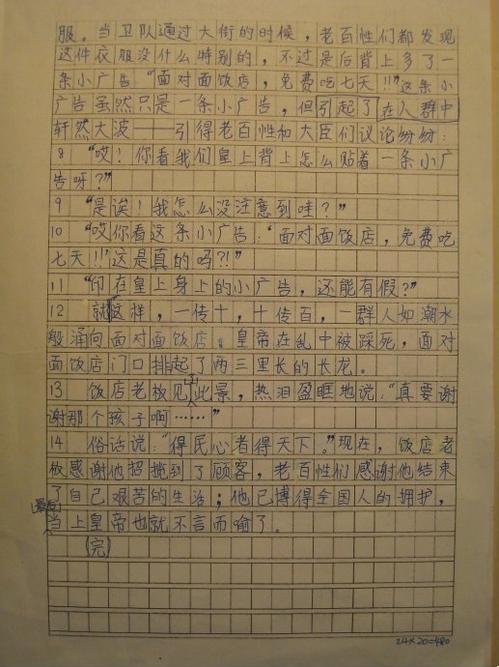 服。当卫队通过大街的时候，老百性们都发现
这件衣服没什么特别的，不过是后背上多了一
条小广告“面对面饭店，免费吃七天!!”这条小
广告虽然只是一条小广告，但引起了在人群中
轩然大波——引得老百性和大臣们议论纷纷：
8 “哎！你看我们皇上背上怎么贴着一条小广
告呀？”
9 “是诶！我怎么没注意到哇？”
10 “哎你看这条小广告：“面对面饭店，免费吃
七天!!”这是真的吗?!”
11 “印在皇上身上的小广告，还能有假？”
12 就这样，一传十，十传百，一群人如潮水
般涌向面对面饭店。皇帝在乱中被踩死，面对
面饭店门口排起了两三里长的长龙。
13 饭店老板见此景，热泪盈眶地说：“真要谢
谢那个孩子啊……”
14 俗话说：“得民心者得天下。”现在，饭店老
板感谢他招揽到了顾客，老百性们感谢他结束
了自己艰苦的生活；他已博得全国人的拥护，
当上皇帝也就不言而喻了。
(完)
24×20=480